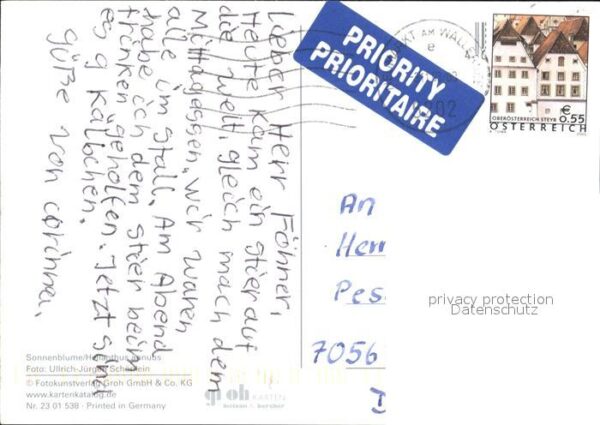 Lieber Herr Föhner,
Heute kam ein Stier auf
die Welt, gleich nach dem
Mittagessen. Wir waren
alle im Stall. Am Abend
habe ich dem Stier beim
trinken geholfen. Jetzt sind
es 9 Kälbchen.
Grüße von Corinna.
PRIORITY
PRIORITAIRE
AM WALLE
€ 0.55
OBERÖSTERREICH STEYR
ÖSTERREICH
An
Herr
Pes
7056
D
privacy protection
Datenschutz
Sonnenblume/Helianthus annuus
Foto: Ullrich-Jürgen Schönlein
© Fotokunstverlag Groh GmbH & Co. KG
www.kartenkatalog.de
Nr. 23 01 538 · Printed in Germany
groh KARTEN